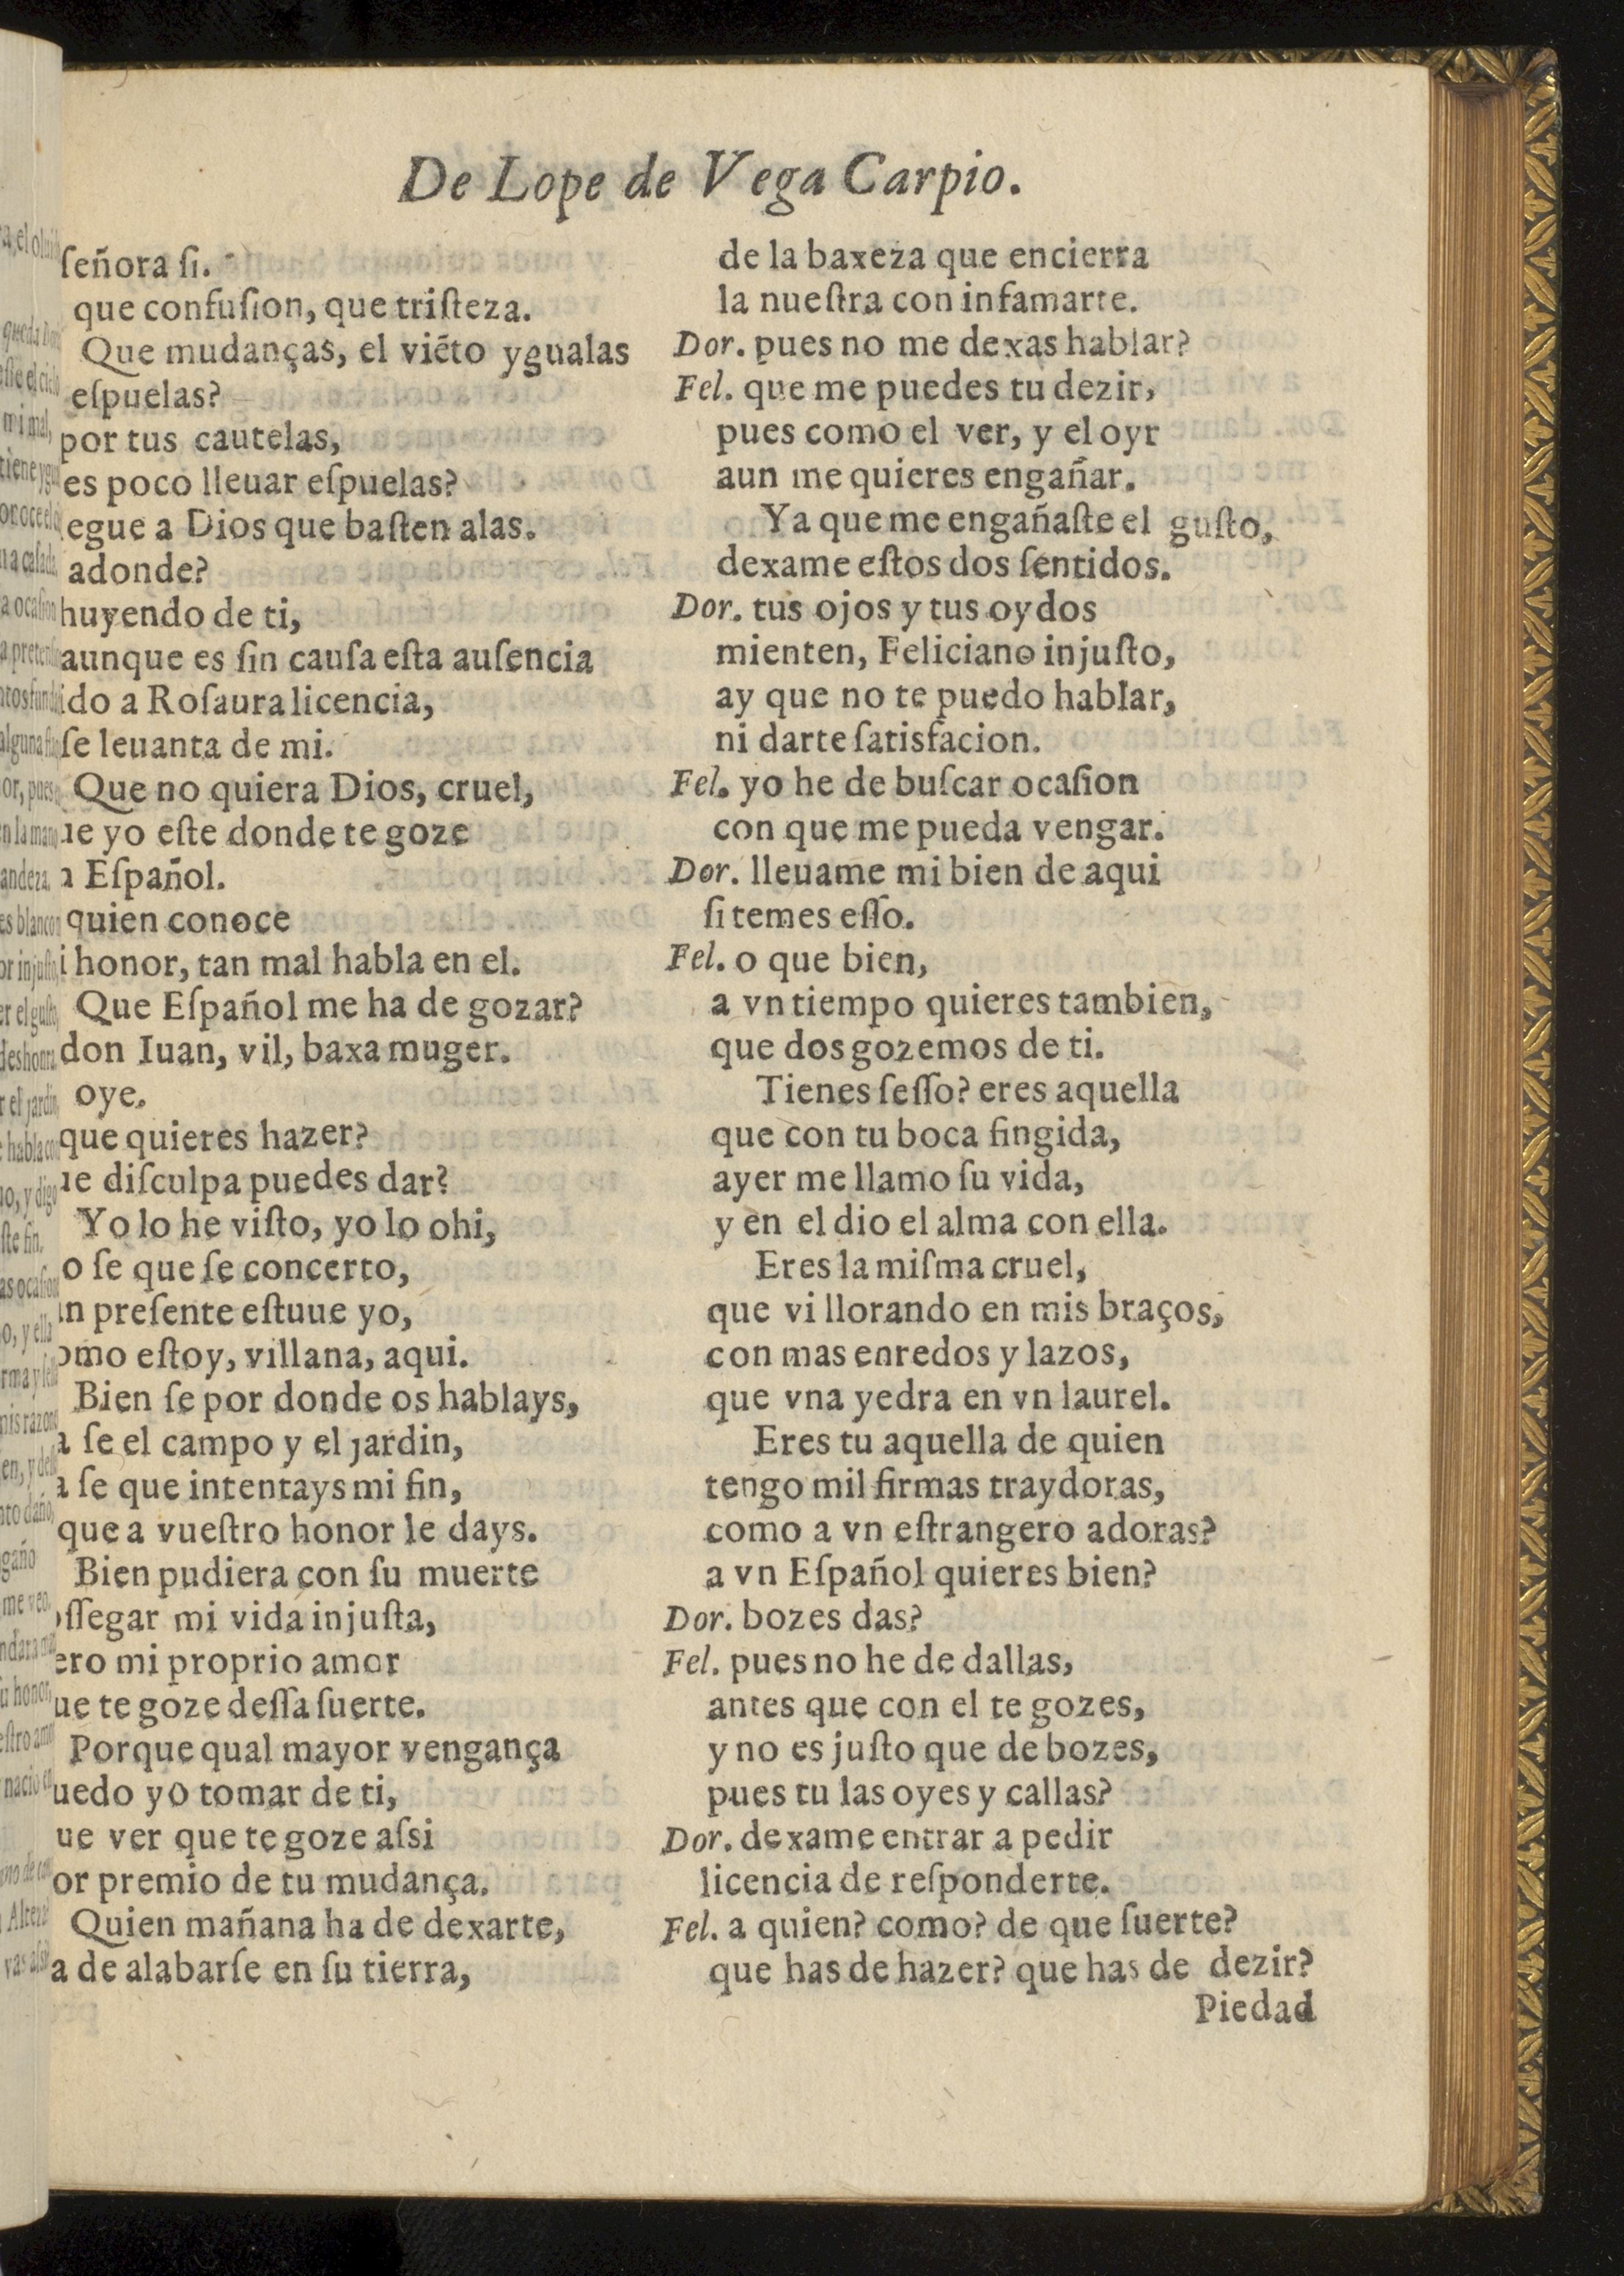 De Lope de Vega Carpio.
ſeñora ſi.
que confuſion, que triſteza.
Que mudanças, el viẽto ygualas
eſpuelas?
por tus cautelas,
es poco lleuar eſpuelas?
egue a Dios que baſten alas.
adonde?
huyendo de ti,
aunque es ſin cauſa eſta auſencia
ido a Roſaura licencia,
ſe leuanta de mi.
Que no quiera Dios, cruel,
ue yo eſte donde te goze
Eſpañol.
quien conoce
i honor, tan mal habla en el.
Que Eſpañol me ha de gozar?
don Iuan, vil, baxa muger.
oye.
que quieres hazer?
ue diſculpa puedes dar?
Yo lo he viſto, yo lo ohi,
o ſe que ſe concerto,
n preſente eſtuue yo,
omo eſtoy, villana, aqui.
Bien ſe por donde os hablays,
a ſe el campo y el jardin,
a ſe que intentays mi fin,
que a vueſtro honor le days.
Bien pudiera con ſu muerte
oſſegar mi vida injuſta,
ero mi proprio amor
ue te goze deſſa ſuerte.
Porque qual mayor vengança
uedo yo tomar de ti,
ue ver que te goze aſsi
or premio de tu mudança.
Quien mañana ha de dexarte,
a de alabarſe en ſu tierra,
de la baxeza que encierra
la nueſtra con infamarte.
Dor. pues no me dexas hablar?
Fel. que me puedes tu dezir,
pues como el ver, y el oyr
aun me quieres engañar.
Ya que me engañaſte el guſto,
dexame eſtos dos ſentidos.
Dor. tus ojos y tus oydos
mienten, Feliciano injuſto,
ay que no te puedo hablar,
ni darte ſatisfacion.
Fel. yo he de buſcar ocaſion
con que me pueda vengar.
Dor. lleuame mi bien de aqui
ſi temes eſſo.
Fel. o que bien,
a vn tiempo quieres tambien,
que dos gozemos de ti.
Tienes ſeſſo? eres aquella
que con tu boca fingida,
ayer me llamo ſu vida,
y en el dio el alma con ella.
Eres la miſma cruel,
que vi llorando en mis braços,
con mas enredos y lazos,
que vna yedra en vn laurel.
Eres tu aquella de quien
tengo mil firmas traydoras,
como a vn eſtrangero adoras?
a vn Eſpañol quieres bien?
Dor. bozes das?
Fel. pues no he de dallas,
antes que con el te gozes,
y no es juſto que de bozes,
pues tu las oyes y callas?
Dor. dexame entrar a pedir
licencia de reſponderte.
Fel. a quien? como? de que ſuerte?
que has de hazer? que has de dezir?
Piedad